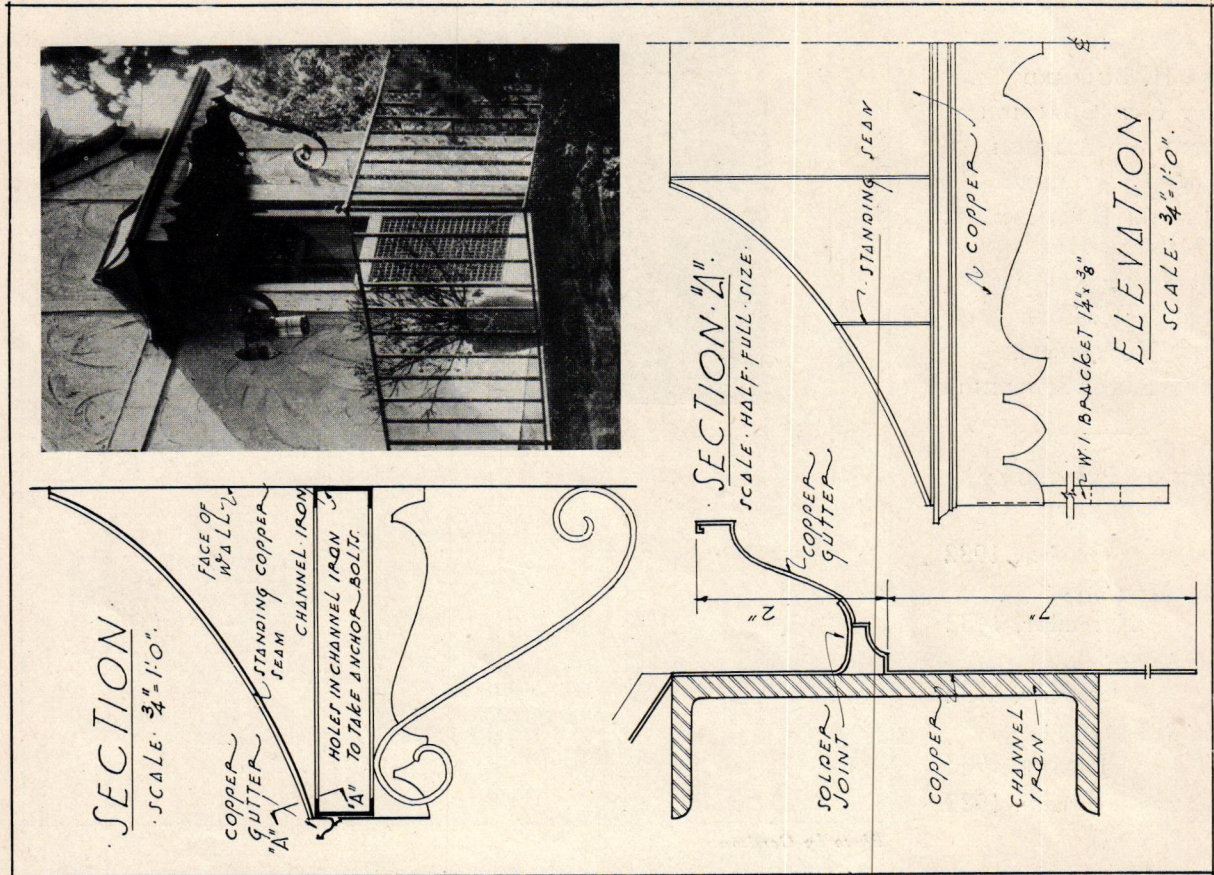 SECTION
SCALE · 3/4" = 1'·0".
FACE OF
WALL
STANDING COPPER
SEAM
CHANNEL · IRON
COPPER
GUTTER
"A"
HOLES IN CHANNEL IRON
"A" TO TAKE ANCHOR BOLTS.
SECTION · "A".
SCALE · HALF · FULL · SIZE.
COPPER
GUTTER
2"
7"
SOLDER
JOINT
COPPER
CHANNEL
IRON
STANDING SEAM
COPPER
W·I· BRACKET 1¼" x ⅜"
ELEVATION
SCALE · 3/4" = 1'·0".